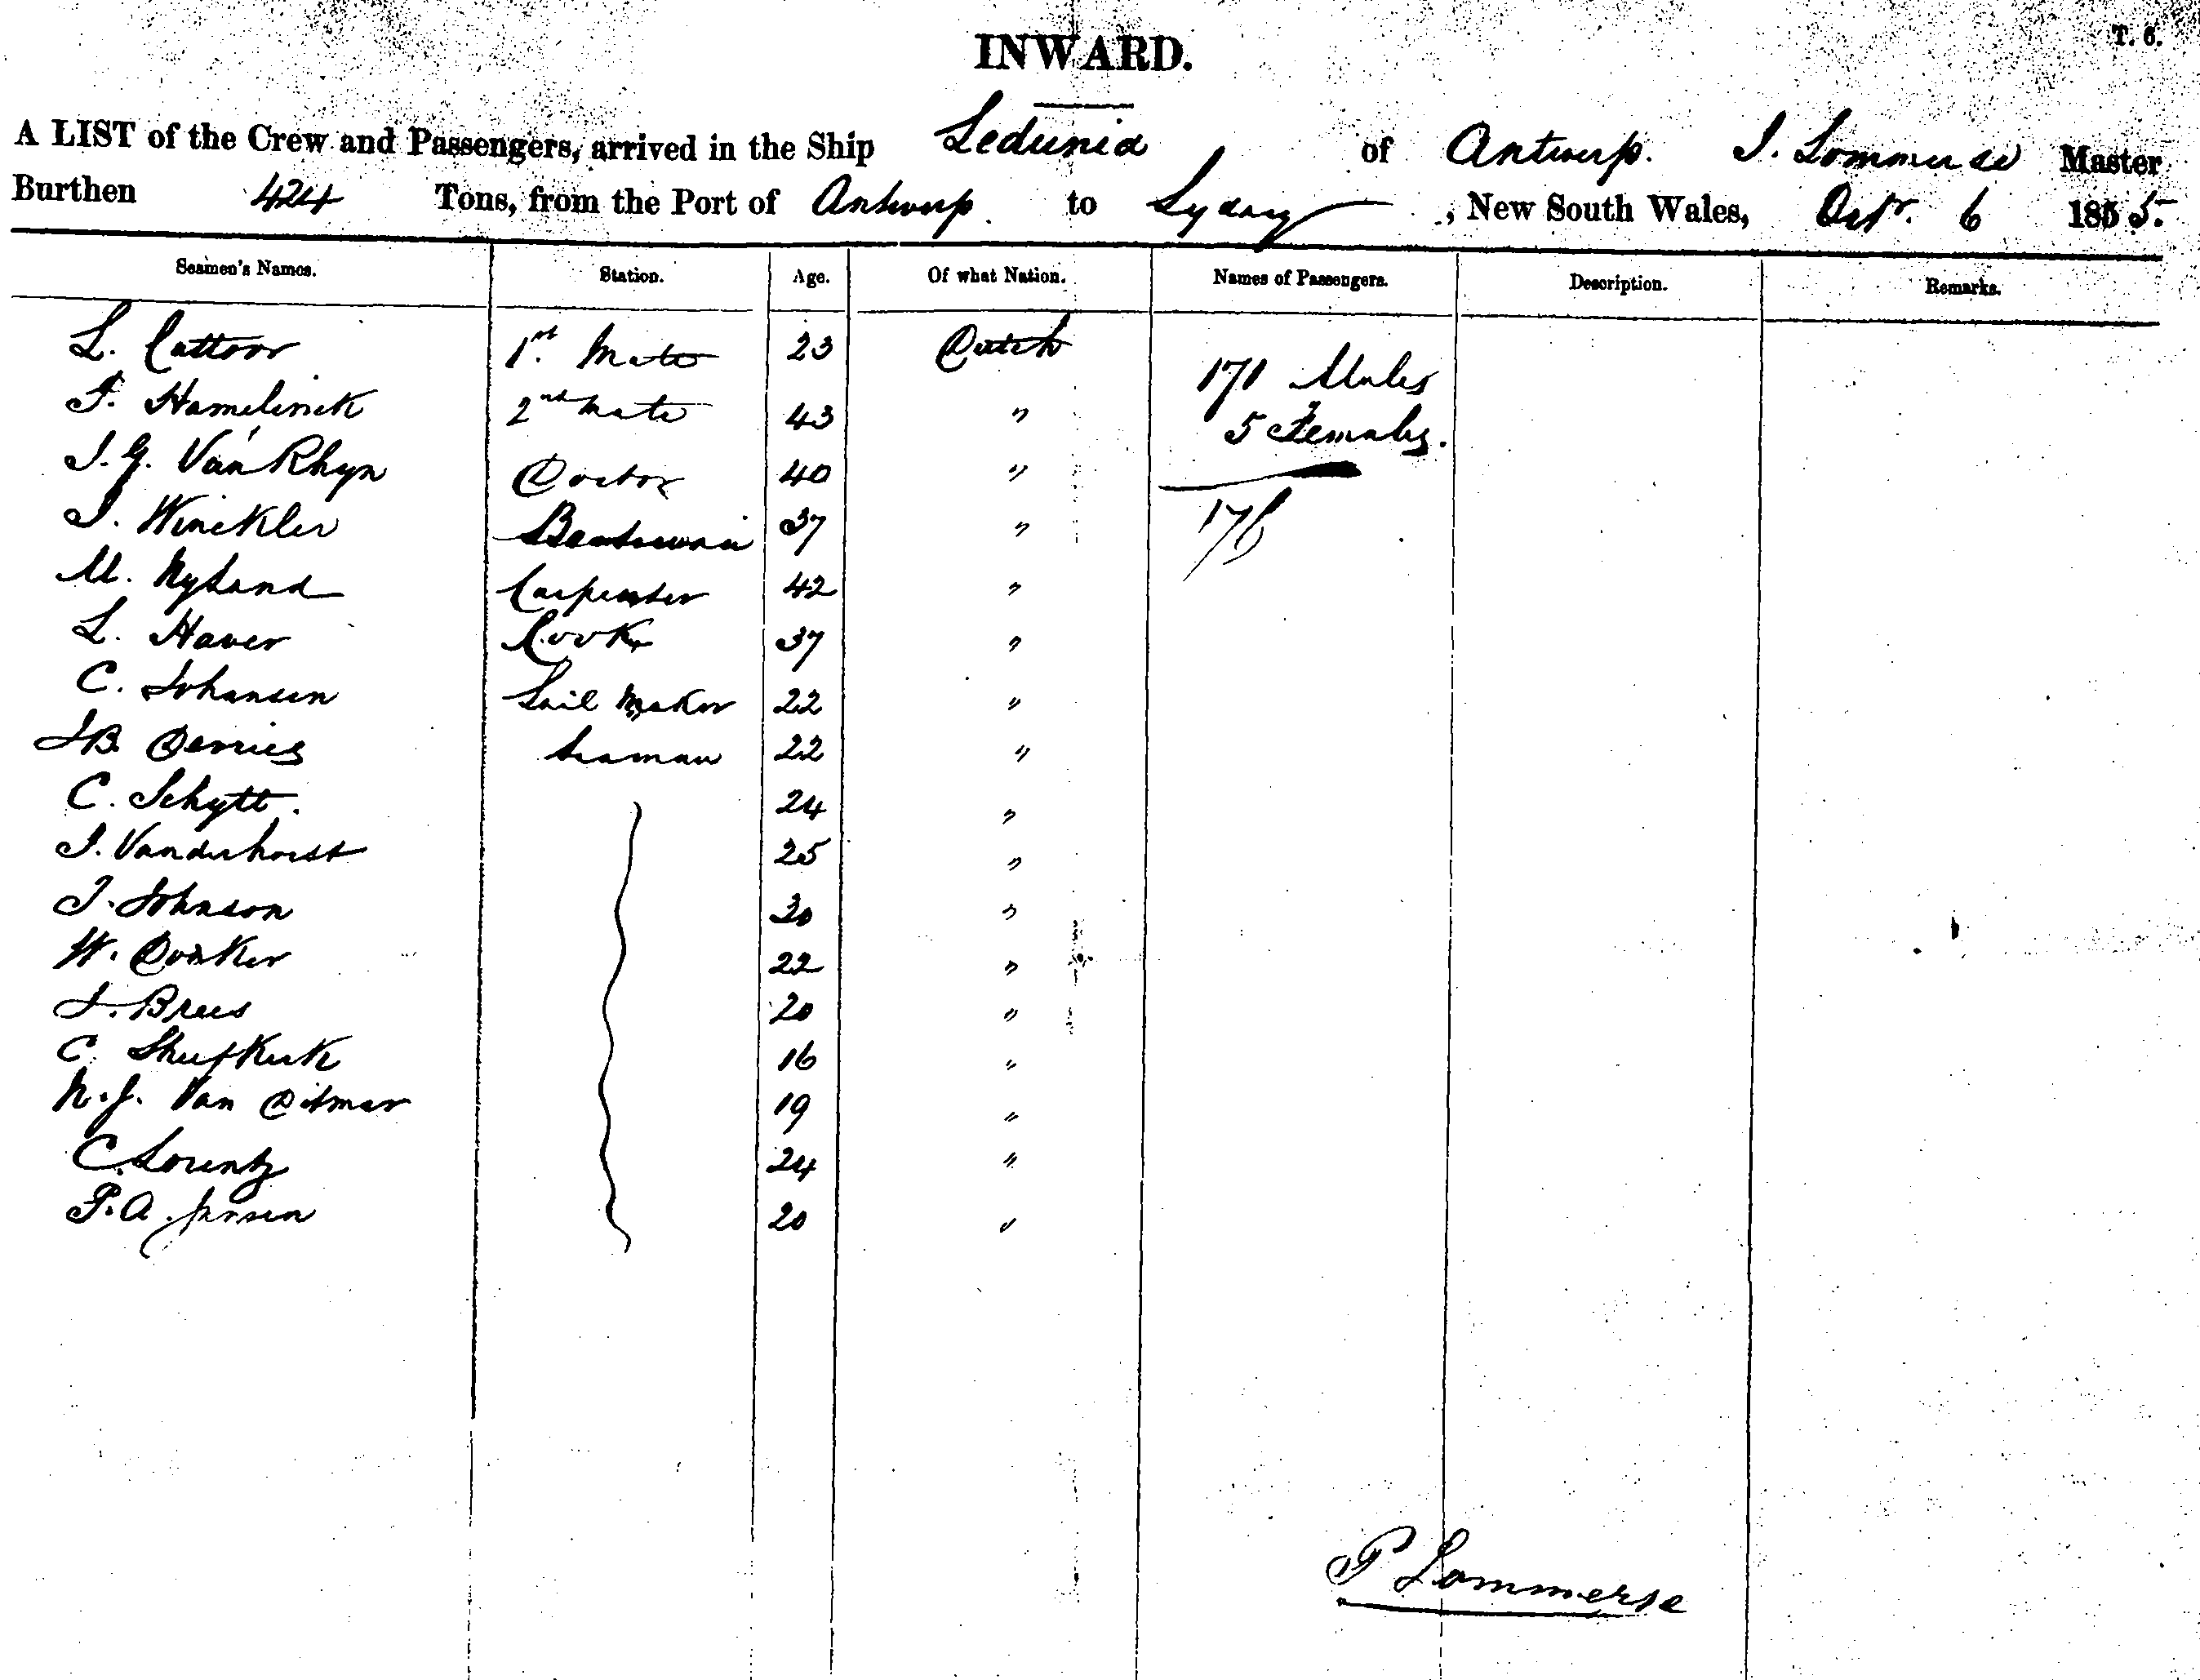 T. 6.
INWARD.
A LIST of the Crew and Passengers, arrived in the Ship Sedunia of Antwerp. I. Lommerse Master
Burthen 424 Tons, from the Port of Antwerp. to Sydney, New South Wales, Octr. 6 1855.
Seamen's Names. Station. Age. Of what Nation. Names of Passengers. Description. Remarks.
L. Cattoor 1st. Mate 23 Dutch 171 Males
F. Hamelinck 2nd Mate 43 " 5 Females.
J. G. Van Rhyn Doctor 40 "
J. Winckler Boatswain 37 " 176
M. Nyland Carpenter 42 "
L. Haver Cook 37 "
C. Johansen Sail Maker 22 "
J B. Devries Seaman 22 "
C. Schytt. 24 "
J. Vanderhorst 25 "
J. Johnson 30 "
W. Donker 22 "
J. Brees 20 "
C. 16 "
N. J. Van Ditmar 19 "
C. Lorentz 24 "
P. A. Jansen 20 "
P Lommerse